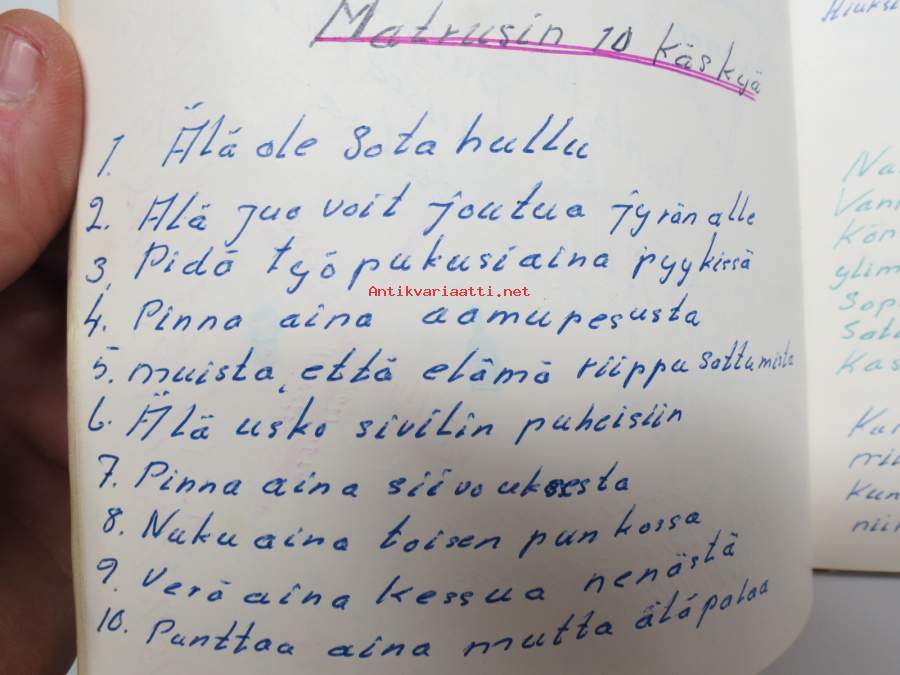 Matrusin 10 käskyä
1. Älä ole Sota hullu
2. Älä juo voit joutua jyrän alle
3. Pidä työpukusi aina pyykissä
4. Pinna aina aamupesusta
5. muista, että elämä riippu sattumista
6. Älä usko sivilin puheisiin
7. Pinna aina siivouksesta
8. Nuku aina toisen punkassa
9. Verä aina kessua nenästä
10. Punttaa aina mutta älä palaa
Antikvariaatti.net
Kör
ylim
Sop
Kas
Kun
niin